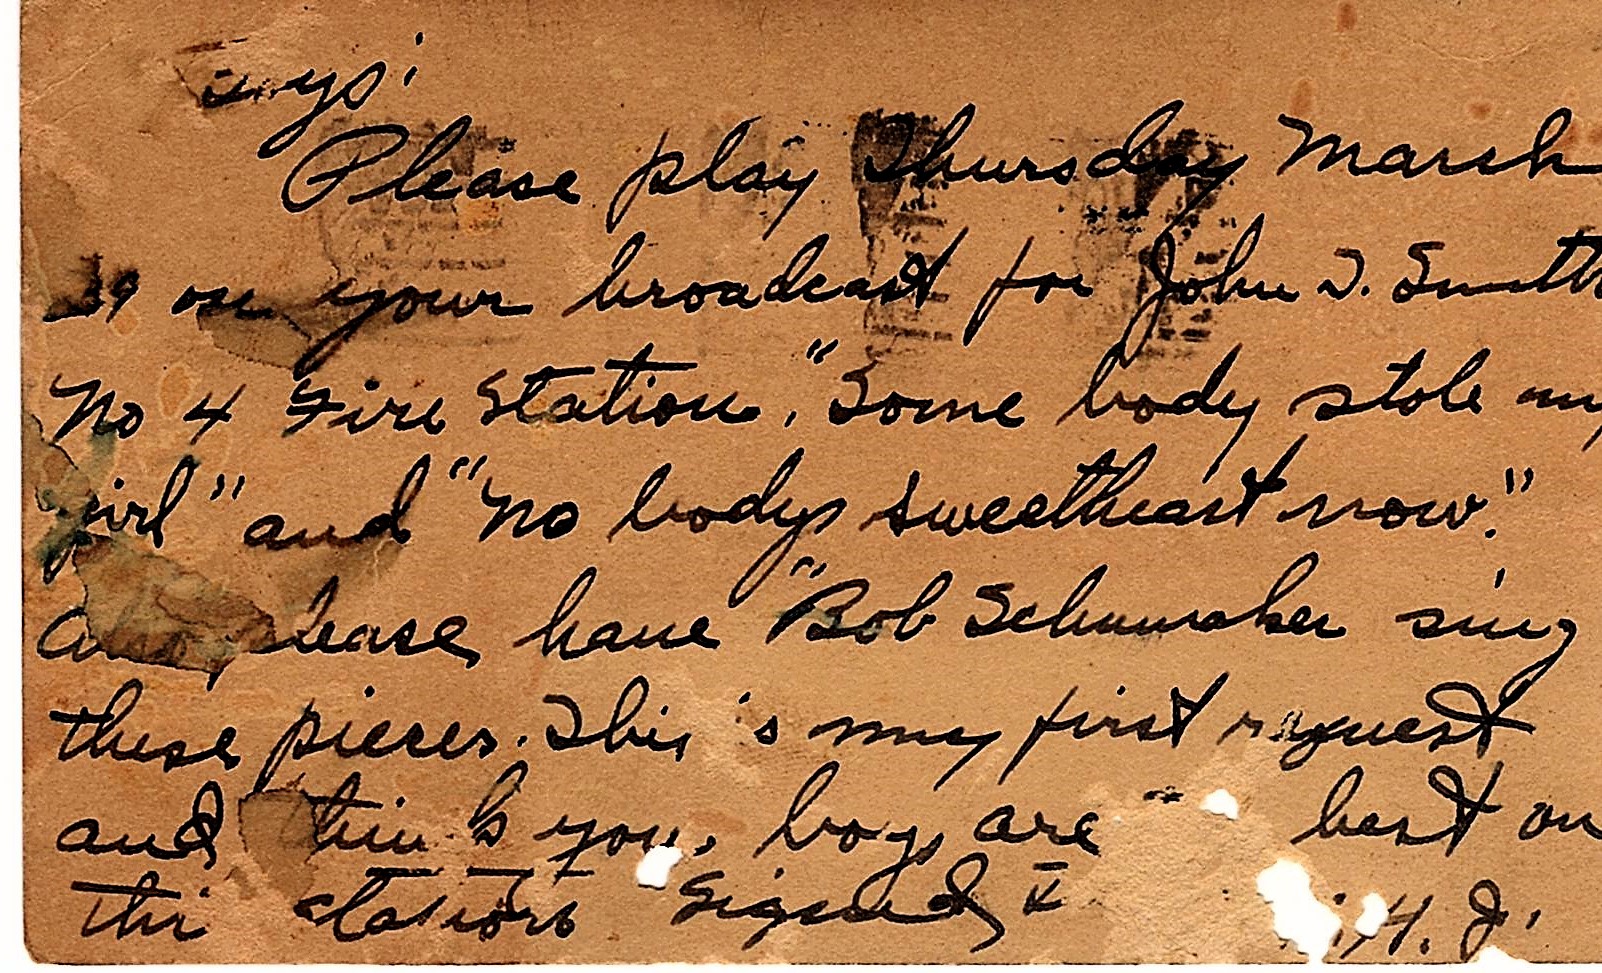 Please play Thursday March
19 on your broadcast for John T. Smith
No 4 Fire Station, "Some body stole my
girl" and "No bodys sweetheart now."
please have "Bob Schumaker sing
these pieces. This is my first request
and think you, boys are best on
the stations Signed
H. J.